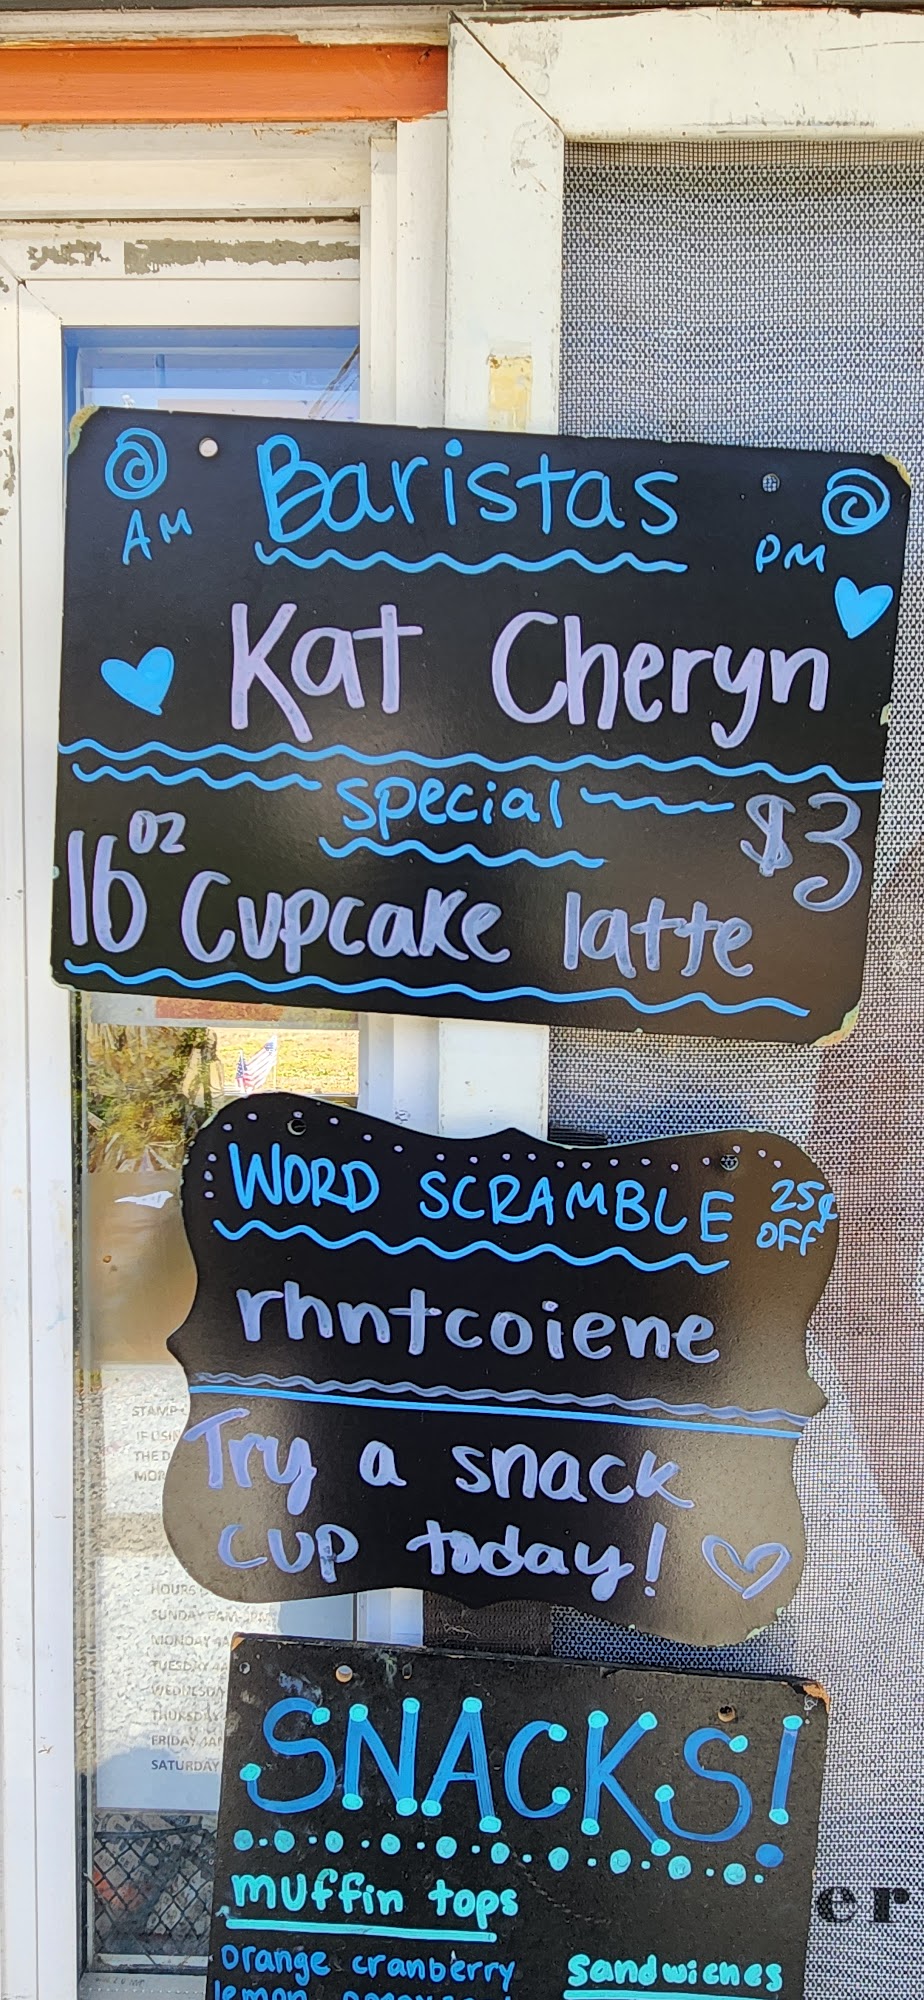 Baristas
AM PM
Kat Cheryn
special
$3
16oz Cupcake latte
WORD SCRAMBLE
25¢
OFF
rhntcoiene
Try a snack
cup today!
STAMP
THE D
MOR
HOURS
SUNDAY
MONDAY
TUESDAY
WEDNESDA
THURSDAY
FRIDAY
SATURDAY
SNACKS!
muffin tops
orange cranberry
lemon
sandwiches
er